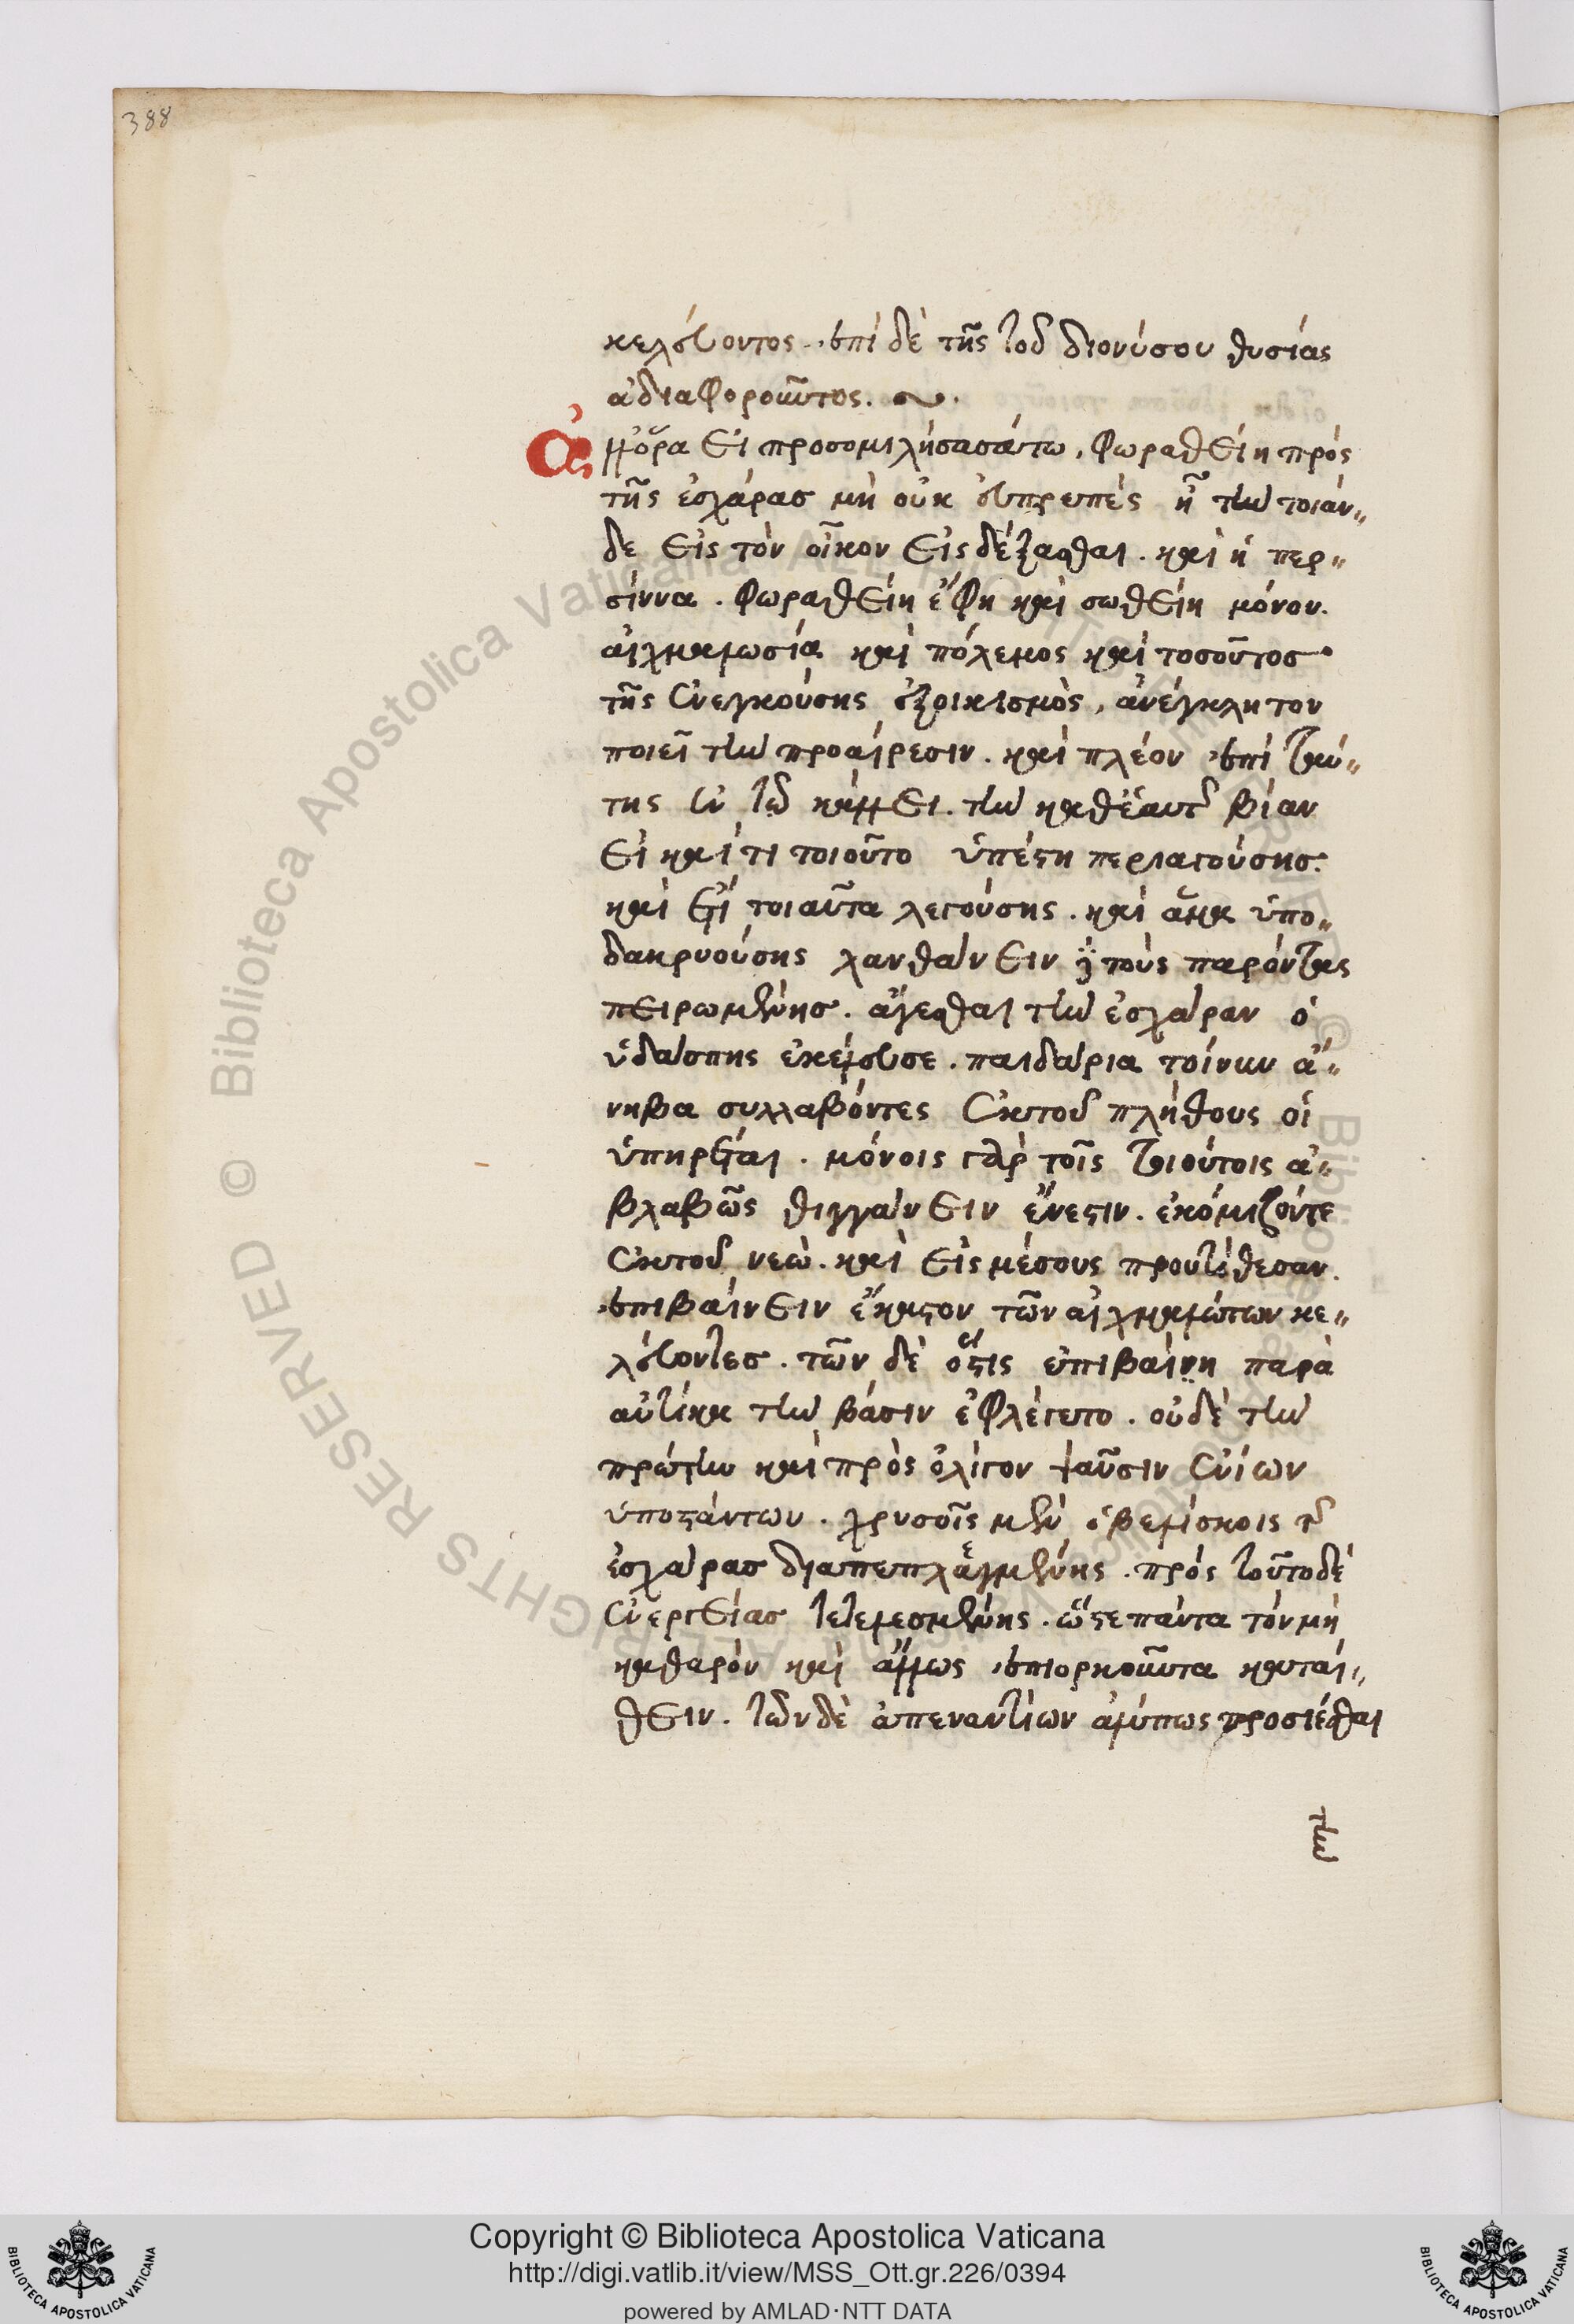 388
κελεύοντος. ἐπὶ δὲ τῆς τοῦ διονύσου θυσίας
ἀδιαφοροῦντος.
ἀλλ' ὅρα εἰ προσομιλήσασά τῳ, φωραθείη πρὸς
τῆς ἐσχάρας μὴ οὐκ εὐπρεπὲς ᾖ τὴν τοιάν-
δε εἰς τὸν οἶκον εἰσδέξασθαι. καὶ ἡ περ-
σίννα. φωραθείη ἔφη καὶ σωθείη μόνον.
αἰχμαλωσία καὶ πόλεμος καὶ τοσοῦτος
τῆς ἐνεγκούσης ἐξοικισμὸς, ἀνέγκλητον
ποιεῖ τὴν προαίρεσιν. καὶ πλέον ἐπὶ ταύ-
της ἐν τῷ κάλλει. τὴν καθ' ἑαυτῆς βίαν
εἰ καί τι τοιοῦτο ὑπέστη περιαγούσης.
καὶ ἔτι τοιαῦτα λεγούσης. καὶ ἅμα ὑπο-
δακρυούσης λανθάνειν τοὺς παρόντας
πειρωμένης. ἄγεσθαι τὴν ἐσχάραν ὁ
ὑδάσπης ἐκέλευσε. παιδάρια τοίνυν ἄ-
νηβα συλλαβόντες ἐκ τοῦ πλήθους οἱ
ὑπηρέται. μόνοις γὰρ τοῖς τοιούτοις ἀ-
βλαβῶς θιγγάνειν ἔνεστιν. ἐκόμιζόν τε
ἐκ τοῦ νεώ. καὶ εἰς μέσους προυτίθεσαν.
ἐπιβαίνειν ἕκαστον τῶν αἰχμαλώτων κε-
λεύοντες. τῶν δὲ ὅστις ἐπιβαίνῃ παρὰ
αὐτίκα τὴν βάσιν ἐφλέγετο. οὐδὲ τὴν
πρώτην καὶ πρὸς ὀλίγον ψαῦσιν ἐνίων
ὑποστάντων. χρυσοῖς μὲν ὀβελίσκοις τῆς
ἐσχάρας διαπεπλεγμένης. πρὸς τοῦτο δὲ
ἐνεργείας τετελεσμένης. ὥστε πάντα τὸν μὴ
καθαρὸν καὶ ἄλλως ἐπιορκοῦντα καταί-
θειν. τῶν δὲ ἀπεναντίων ἀλύπως προσίεσθαι
τὴν
Copyright © Biblioteca Apostolica Vaticana
http://digi.vatlib.it/view/MSS_Ott.gr.226/0394
powered by AMLAD·NTT DATA